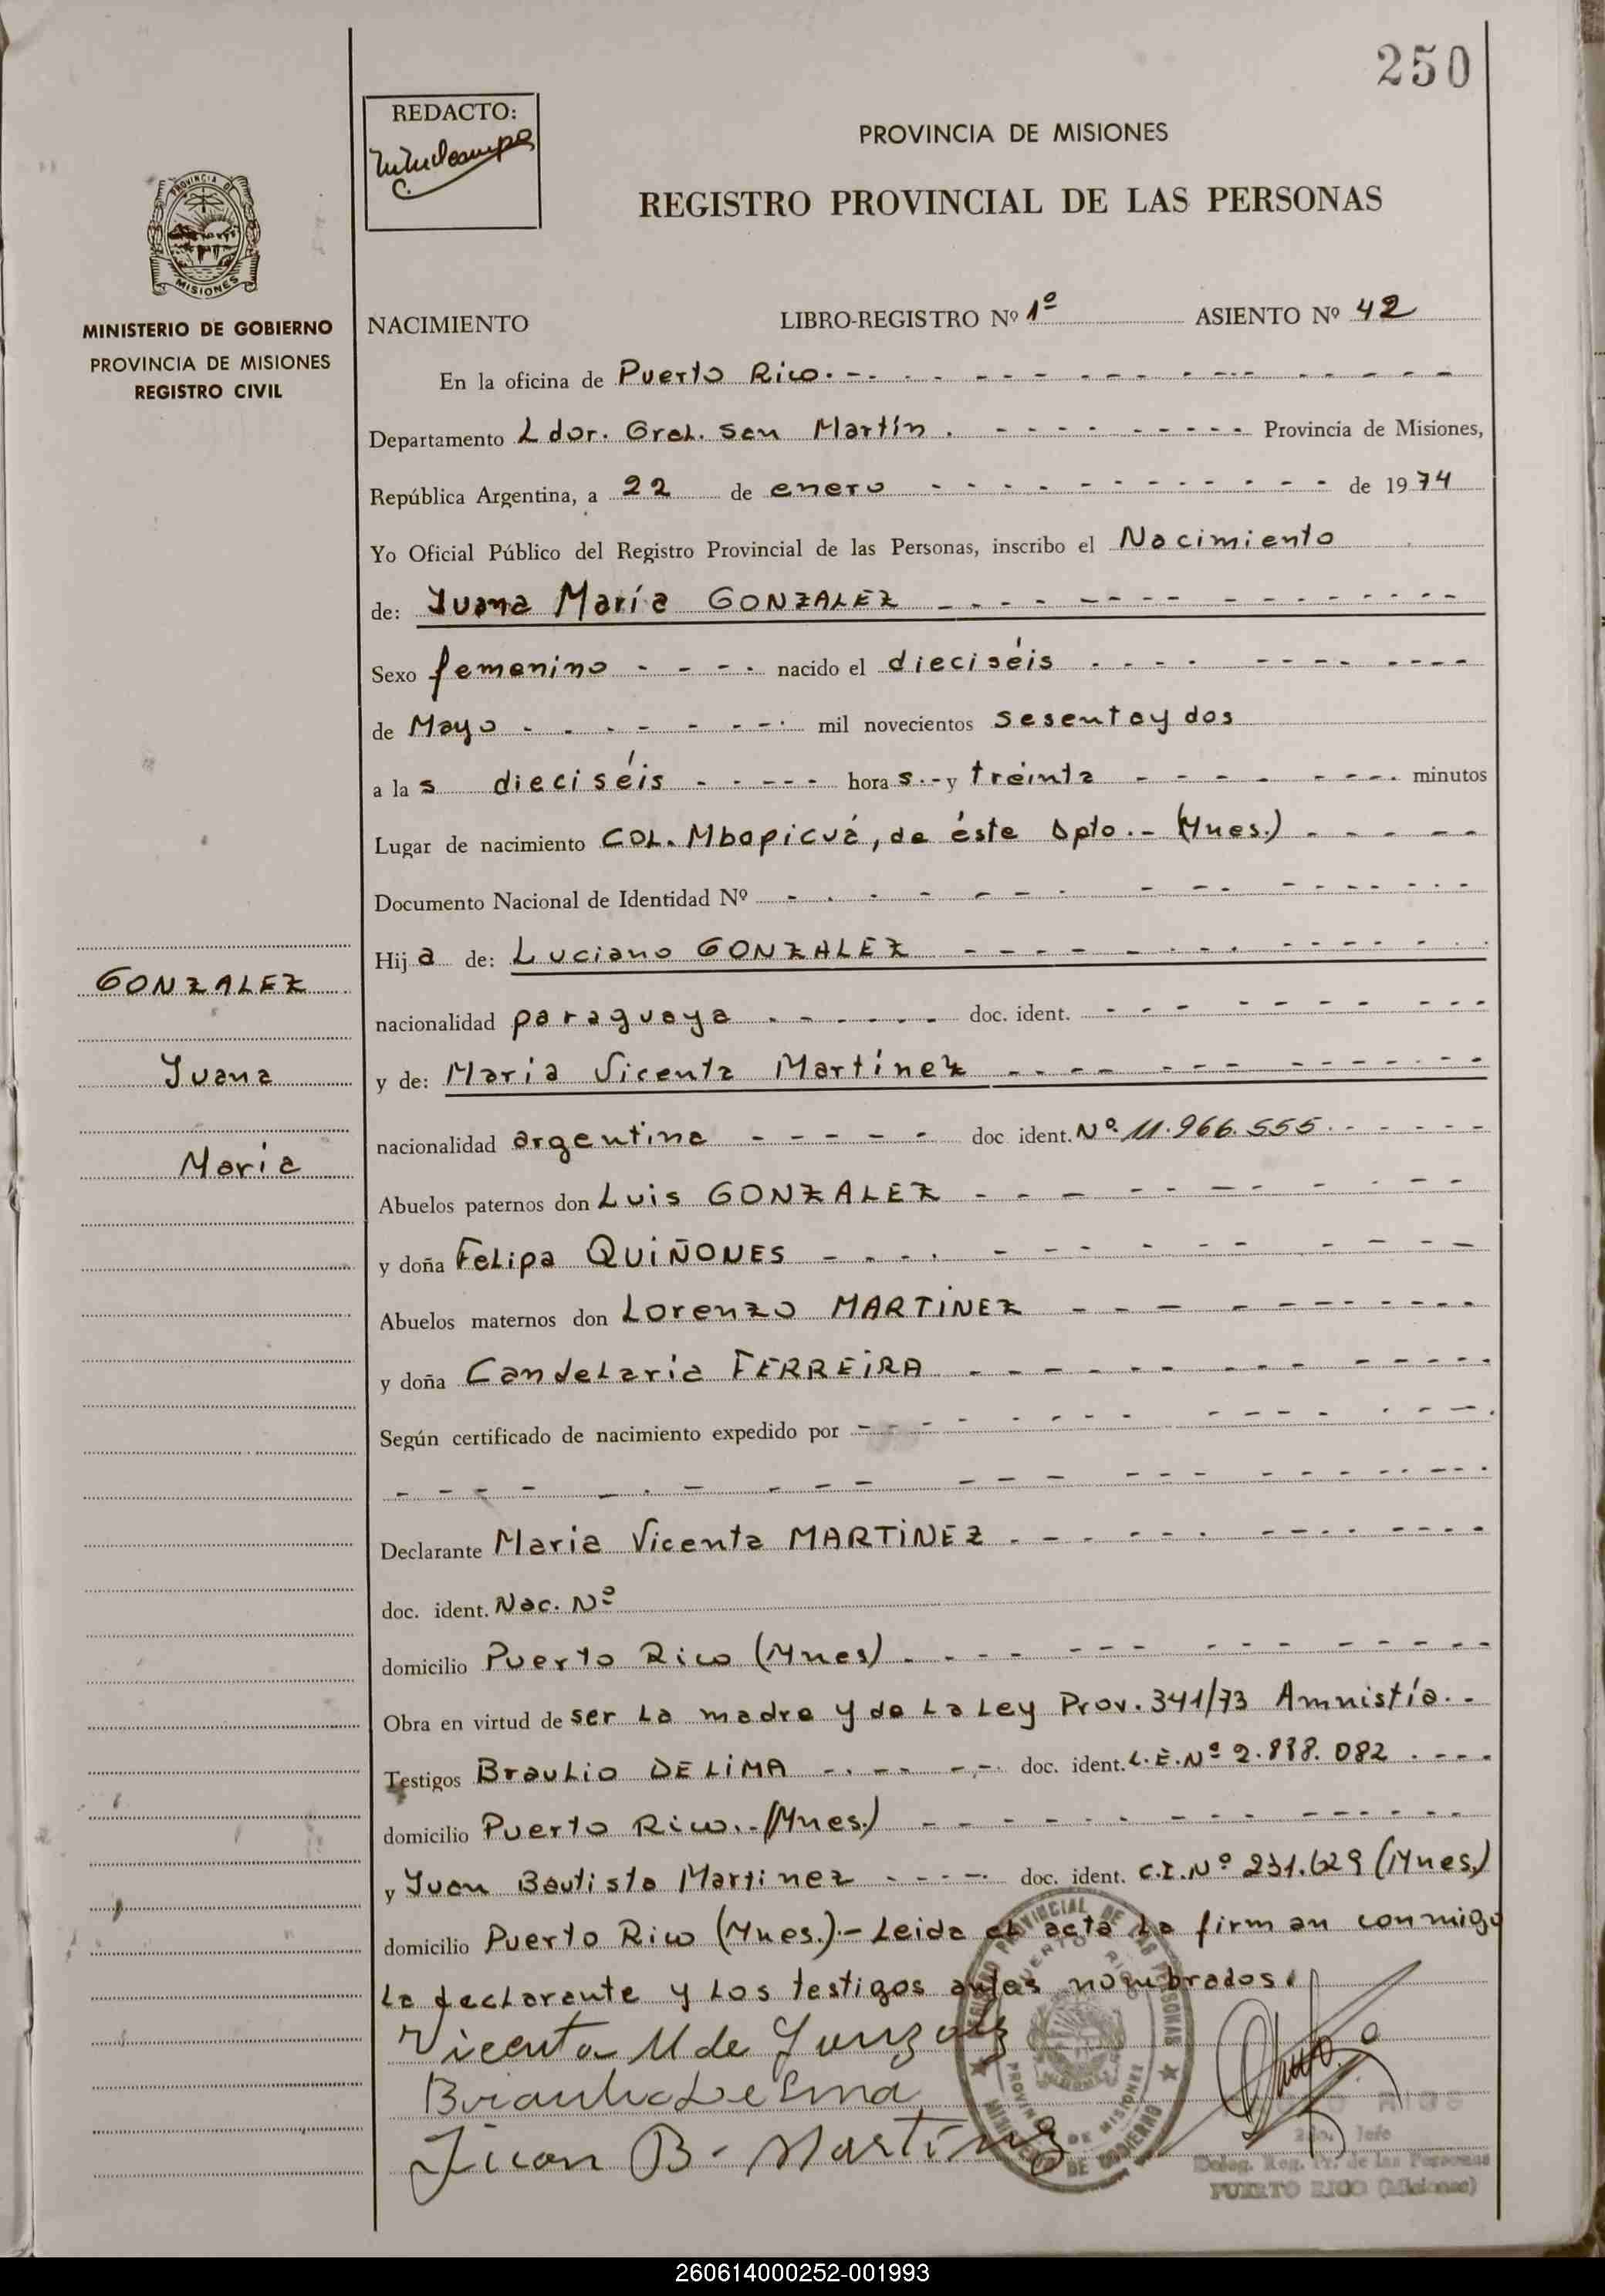 250
REDACTO:
PROVINCIA DE MISIONES
REGISTRO PROVINCIAL DE LAS PERSONAS
PROVINCIA DE
MISIONES
MINISTERIO DE GOBIERNO
PROVINCIA DE MISIONES
REGISTRO CIVIL
NACIMIENTO LIBRO-REGISTRO Nº 1º ASIENTO Nº 42
En la oficina de Puerto Rico.-
Departamento Ldor. Gral. San Martín. Provincia de Misiones,
República Argentina, a 22 de enero de 1974
Yo Oficial Público del Registro Provincial de las Personas, inscribo el Nacimiento
de: Juana María GONZALEZ
Sexo femenino nacido el dieciséis
de Mayo mil novecientos sesenta y dos
a las dieciséis horas.- y treinta minutos
Lugar de nacimiento COL. Mbopicuá, de éste Dpto.- (Mnes.)
Documento Nacional de Identidad Nº
Hija de: Luciano GONZALEZ
GONZALEZ
nacionalidad paraguaya doc. ident.
Juana
y de: María Vicenta Martínez
nacionalidad argentina doc ident. Nº 11.966.555.
María
Abuelos paternos don Luis GONZALEZ
y doña Felipa QUIÑONES
Abuelos maternos don Lorenzo MARTINEZ
y doña Candelaria FERREIRA
Según certificado de nacimiento expedido por
Declarante Maria Vicenta MARTINEZ
doc. ident. Nac. Nº
domicilio Puerto Rico (Mnes)
Obra en virtud de ser la madre y de la Ley Prov. 341/73 Amnistía.-
Testigos Braulio DE LIMA doc. ident. L.E. Nº 2.888.082
domicilio Puerto Rico.- (Mnes.)
y Juan Bautista Martinez doc. ident. C.I. Nº 231.629 (Mnes.)
domicilio Puerto Rico (Mnes.).- Leida el acta la firman conmigo
la declarante y los testigos antes nombrados.
Vicenta M de Gonzalez
Braulio De Lima
Juan B. Martinez
REGISTRO PROVINCIAL DE LAS PERSONAS
PUERTO RICO
PROVINCIA DE MISIONES
MINISTERIO DE GOBIERNO
Jefe
Deleg. Reg. Pr. de las Personas
PUERTO RICO (Misiones)
260614000252-001993